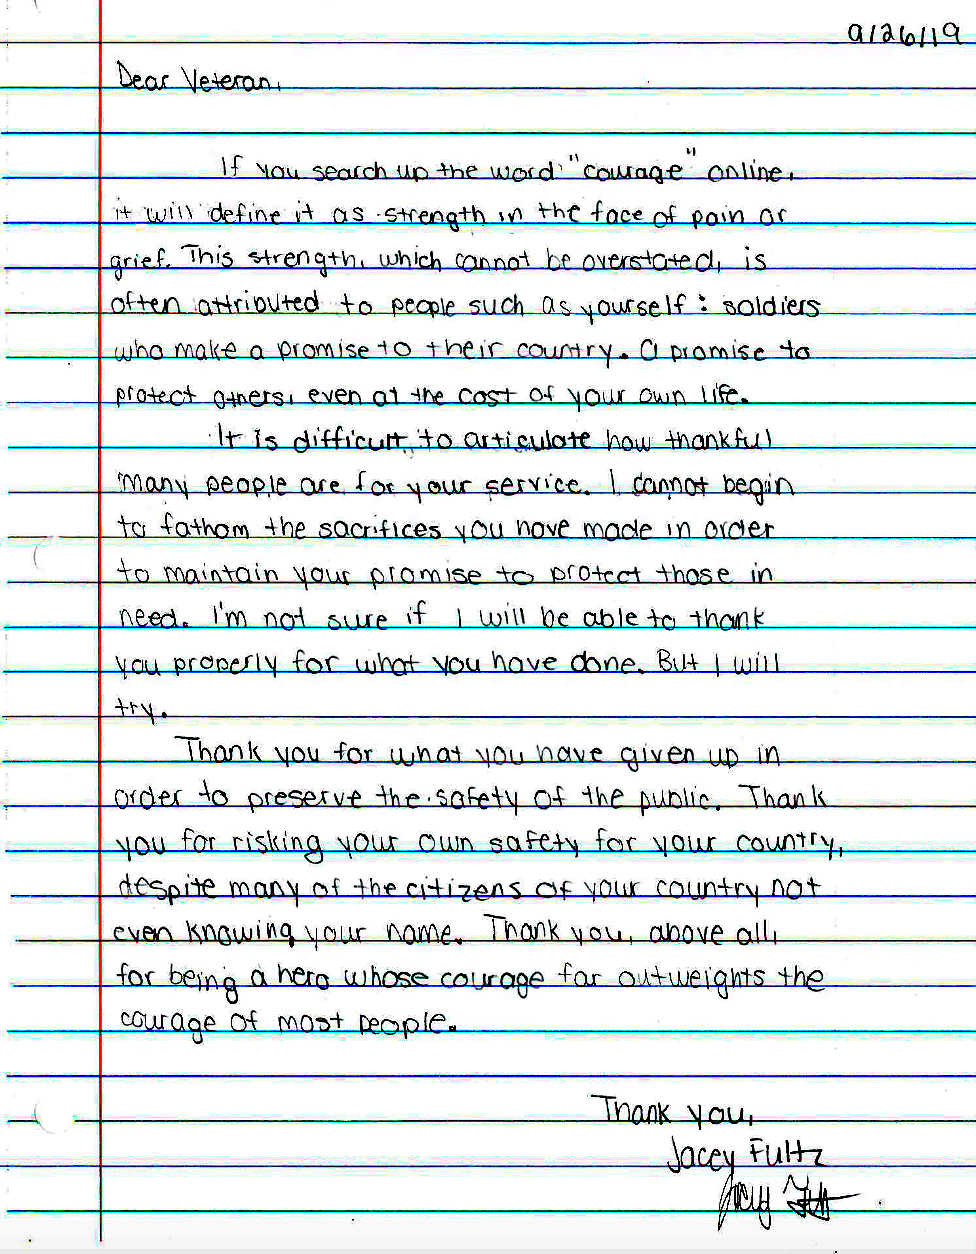 9/26/19
Dear Veteran,
If you search up the word "courage" online,
it will define it as strength in the face of pain or
grief. This strength, which cannot be overstated, is
often attributed to people such as yourself: soldiers
who make a promise to their country. A promise to
protect others, even at the cost of your own life.
It is difficult to articulate how thankful
many people are for your service. I cannot begin
to fathom the sacrifices you have made in order
to maintain your promise to protect those in
need. I'm not sure if I will be able to thank
you properly for what you have done. But I will
try.
Thank you for what you have given up in
order to preserve the safety of the public. Thank
you for risking your own safety for your country,
despite many of the citizens of your country not
even knowing your name. Thank you, above all,
for being a hero whose courage far outweights the
courage of most people.
Thank you,
Jacey Fultz
Jacey Fultz